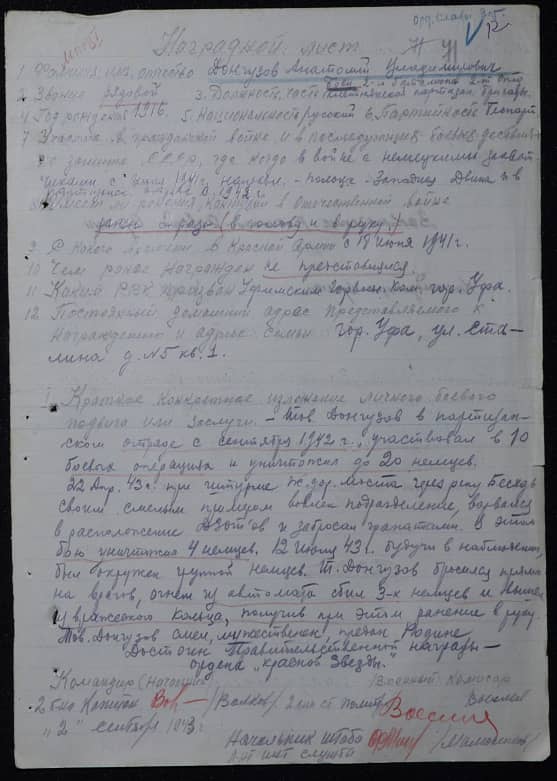 Орд. Славы 3 ст.
Наградной лист
1 Фамилия, имя, отчество Донгузов Анатолий Владимирович
2. Звание рядовой 3. Должность, часть
партизан. бригады.
4 Год рождения 1916. 5. Национальность русский 6. Партийность
7 Участие в гражданской войне и в последующих боевых действиях
по защите СССР, где когда в войне с немецкими захват-
чиками с июня 1941 г. Полоцк - Западная Двина и в
1942 г.
8 Имеет ли ранения, контузии в отечественной войне
ранен 2 раза (в голову и в руку.)
9. С какого времени в Красной Армии с 18 июня 1941 г.
10 Чем ранее награжден не представлялся.
11 Каким РВК призван Уфимским Горвоен. ком. гор. Уфа.
12 Постоянный домашний адрес представляемого к
награждению и адрес семьи гор. Уфа, ул. Ста-
лина д. №5 кв. 1.
1 Краткое конкретное изложение личного боевого
подвига или заслуги. – Тов. Донгузов в партизан-
ском отряде с сентября 1942 г., участвовал в 10
боевых операциях и уничтожил до 20 немцев.
22 Апр. 43 г. при штурме ж. дор. моста через реку Беседь
своим смелым примером вовлек подразделение, ворвался
в расположение Дзот'ов и забросал гранатами. В этом
бою уничтожил 4 немцев. 12 июля 43 г. будучи в наблюдении,
был окружен группой немцев. Т. Донгузов бросился прямо
на врагов, огнем из автомата сбил 3-х немцев и вышел
из вражеского кольца, получив при этом ранение в руку.
Тов. Донгузов смел, мужественен, предан Родине
Достоин Правительственной награды –
ордена "Красной Звезды."
Командир (Начальник) Военный Комиссар
2 б-на /Волков/
"2" сентября 1943 г.
Начальник штаба